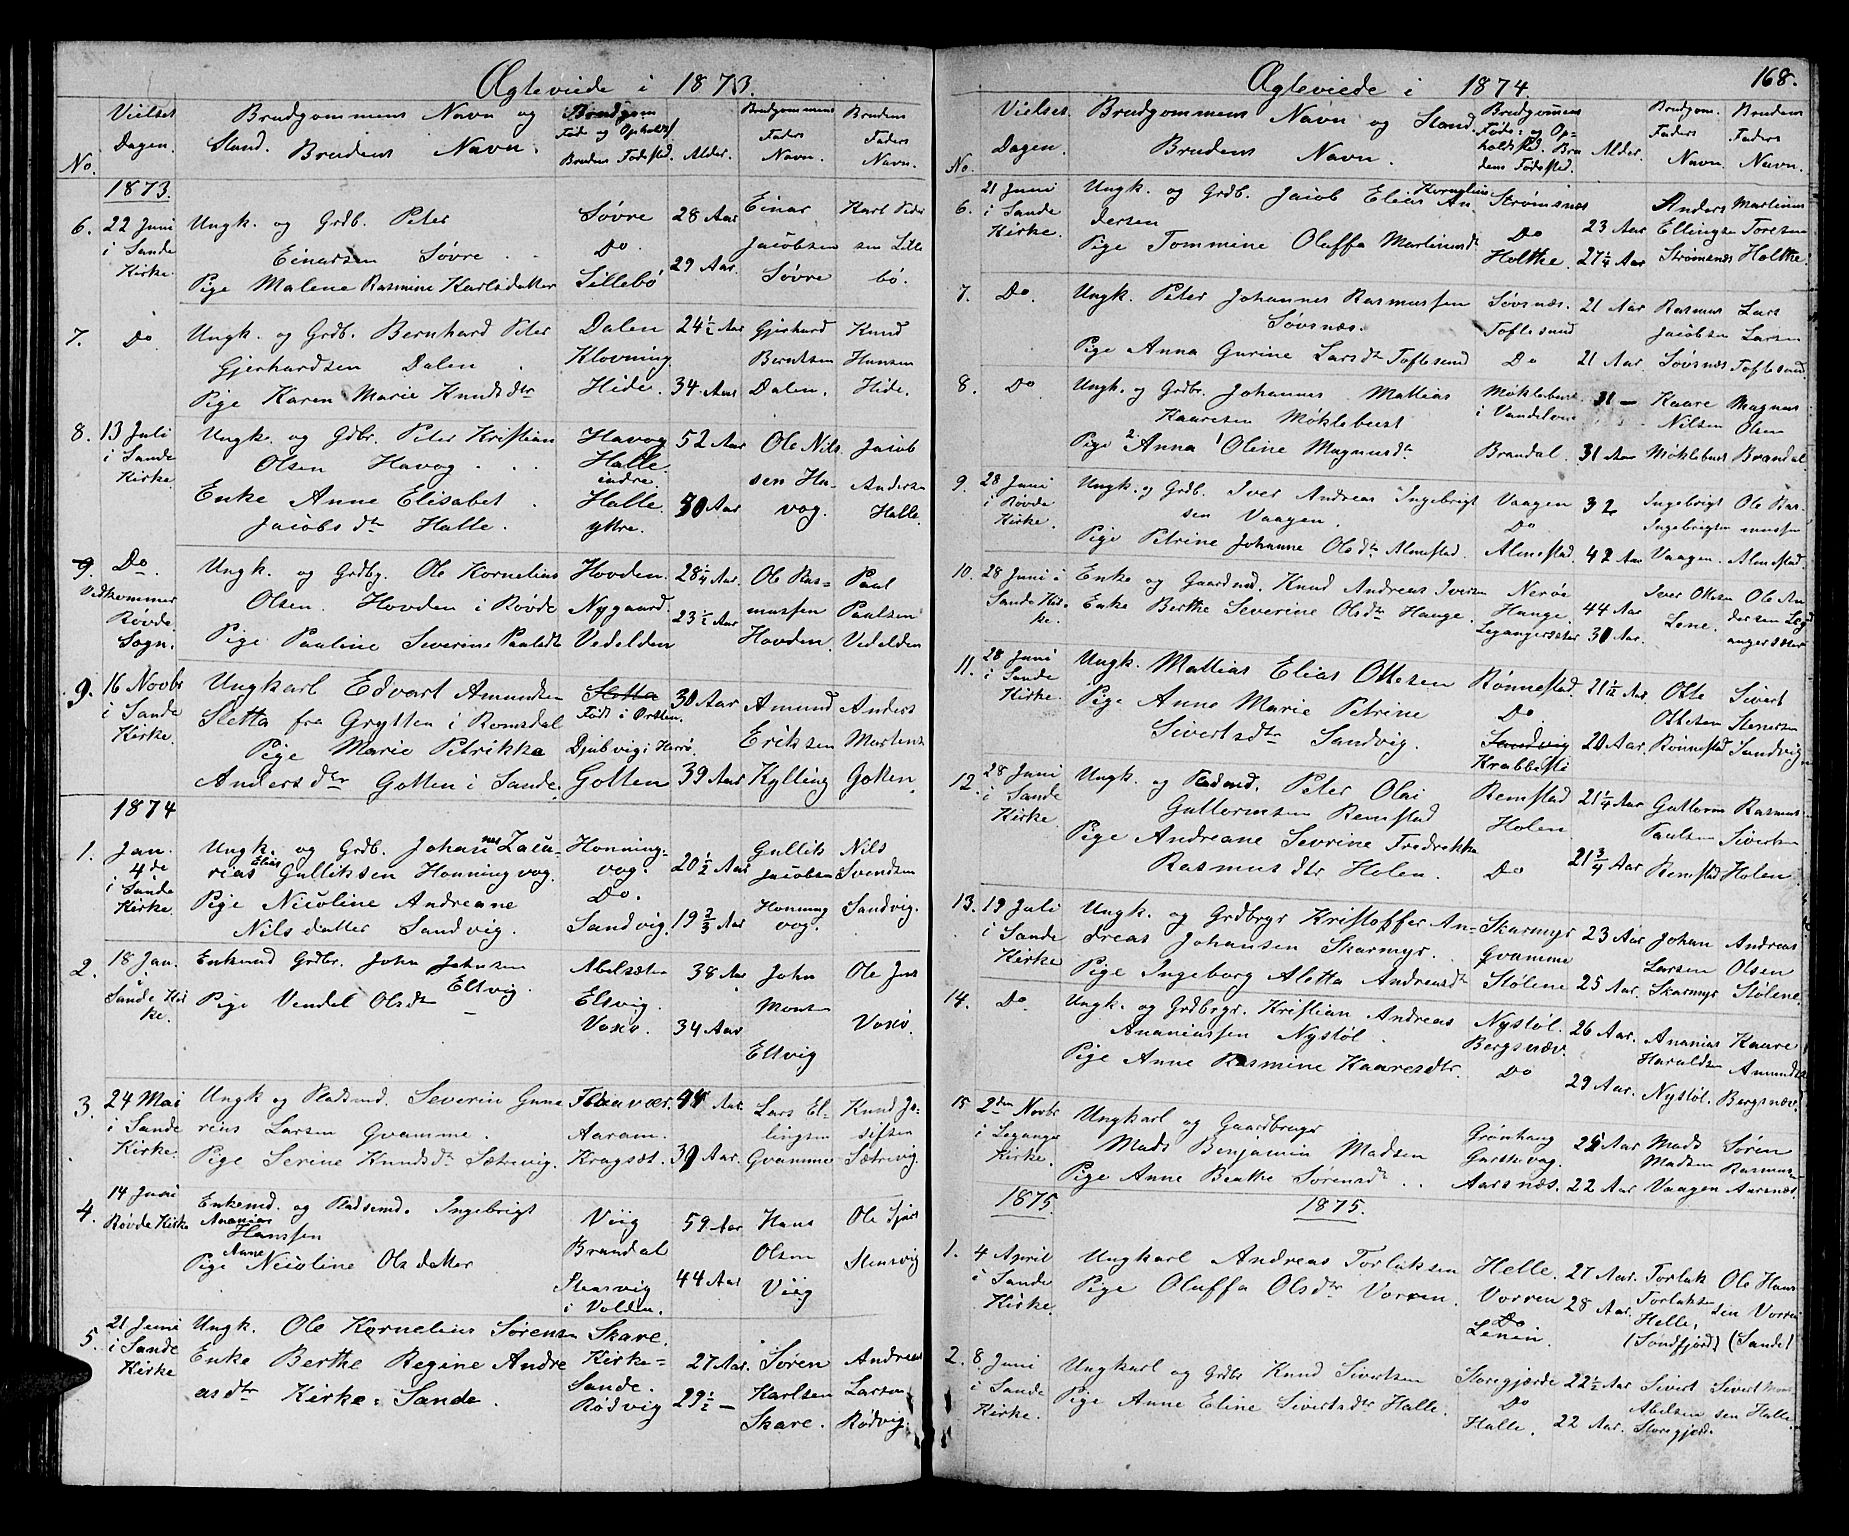 Ægteviede i 1873.
No.
Vielses Dagen.
Brudgommens Navn og Stand. Brudens Navn.
Brudgom Føde og Opholds/ Brudens Fødested.
Alder.
Brudgommens Faders Navn.
Brudens Faders Navn.
1873.
6. 22 Juni i Sande Kirke
Ungk. og Grdb. Peter
Einarsen Søvre
Pige Malene Rasmine Karlsdatter
Søvre Do. Lillebö
28 Aar 29 Aar
Einar Jacobsen Søvre
Karl Peder sen Lille bö.
7. Do
Ungk. og Grdb. Bernhard Peter
Gjerhardsen Dalen
Pige Karen Marie Knudsdtr
Dalen Klovning Hide
24½ Aar 34 Aar
Gjerhard Berntsen Dalen.
Knud Hansen Hide.
8. 13 Juli i Sande Kirke
Ungk. og Gdbr. Peter Kristian
Olsen Havog
Enke Anne Elisabet
Jacobsdtr Halle.
Havog Halle indre Halle ytre.
52 Aar 50 Aar
Ole Nils sen Ha vog.
Jacob Anderse Halle.
9. Do Vedkommer Røvde Sogn.
Ungk. og Grdbg. Ole Kornelius
Olsen. Hovden i Røvde
Pige Pauline Severine Paulsdt
Hovden. Nygaard. Vedelden
28¼ Aar. 23½ Aar
Ole Ras= mussen Hovden
Paul Paulsen Vedelden
9. 16 Novbr i Sande Kirke
Ungkarl Edvart Amundsen
Sletta fra Grytten i Romsdal
Pige Marie Petrikke
Andersdtr Gotten i Sande
Født i Ørsten. Djubvig i Herrø Gotten
30 Aar 39 Aar
Amund Eriksen Kylling
Anders Martens Gotten
1874
1. Jan. 4de i Sande Kirke
Ungk. og Grdb. Johannes Zacu-
rias Elias Gulliksen Honningvog.
Pige Nicoline Andreane
Nilsdatter Sandvig.
Honning= vog. Do. Sandvig.
20½ Aar 19⅔ Aar
Gullik Jacobsen Honning vog.
Nils Svendsen Sandvig.
2. 18 Jan. i Sande Kir ke.
Enkemd Grdbr. John Johnsen
Eltvig.
Pige Vendel Olsdtr
Abelsæter Eltvig. Voxö.
38 Aar 34 Aar
John Monsen Eltvig
Ole Jens Voxö.
3. 24 Mai i Sande Kirke
Ungk og Pladsmd. Severin Guna
rius Larsen Gvamme.
Pige Serine Knudsdtr Sætrevig.
Aaram. Kragsæt.
44 Aar. 39 Aar.
Lars El lingsen Gvamme
Knud Jo sifsen Sætrevig
4. 14 Juni Røvde Kirke
Enkemd. og Pladsemd. Ingebrigt
Ananias
Hansen
Pige Anne Nicoline Olsdatter
Viig Brandal Steensvig i Volden.
59 Aar 44 Aar
Hans Olsen Viig
Ole Stensvig
5. 21 Juni i Sande Kirke
Ungk. Ole Kornelius Sørensen
Enke Berthe Regine Andre
asdtr Kirke=Sande.
Skare. Kirke= Sande. Rødvig
27 Aar. 29½ —
Søren Karlsen Skare.
Andreas Larsen Rødvig
Ægteviede i 1874.
168.
No.
Vielses Dagen.
Brudgommens Navn og Stand. Brudens Navn.
Brudgommens Føde= og Op= holdsted. Bru dens Fødested.
Alder.
Brudgom. Faders Navn.
Brudens Faders Navn.
6. 21 Juni i Sande Kirke.
Ungk. og Grdb. Jacob Elias Kornelius An
dersen
Pige Tommine Oluffa Martinusdt
Strømsnes Do Holtke.
23 Aar 27¼ Aar
Anders Ellingsen Strømsnes
Martinus Toresen Holtke.
7. Do.
Ungk. Peter Johannes Rasmussen
Søvsnæs.
Pige Anna Gurine Larsdt Toftesund
Søvsnæs. Toftesund Do
21 Aar 21 Aar.
Rasmus Jacobsen Søvsnæs
Lars Larsen Toftesund
8. Do
Ungk. og Grdbr. Johannes Mattias
Kaaresen Møklebust
Pige 2 Anna 1 Oline Magnusdtr
Møklebust i Vandelven Brandal
31 — 31 Aar
Kaare Nilsen Møklebust
Magnus Olsen Brandal
9. 28 Juni i Røvde Kirke.
Ungk. og Grdb. Iver Andreas Ingebrigt
sen Vaagen.
Pige Petrine Johanne Olsdtr Almestad.
Vaagen Do Almestad.
32 42 Aar
Ingebrigt Ingebrigtsen Vaagen.
Ole Ras- mussen Almestad.
10. 28 Juni i Sande Kir- ke.
Enke og Gaardmd. Knud Andreas Iversen
Enke Berthe Severine Olsdtr Hauge.
Nerøe Hauge. Legangersæter
44 Aar 30 Aar.
Iver Ottesen Lene.
Ole An dersen Leg angersæter
11. 28 Juni i Sande Kirke.
Ungk. Mattias Elias Ottesen
Pige Anne Marie Petrine
Sivertsdtr Sandvig.
Rønnestad. Do. Sandvig Krabbesti
20 Aar.
Otte Ottesen Rønnestad
Sivert Stenersen Sandvig
12. 28 Juni i Sande Kirke
Ungk. og Pladsmd. Peter Olai
Guttormsen Remstad
Pige Andreane Sevrine Fredrikka
Rasmusdtr Holen.
Remstad Holen Do
21¼ Aar 21¾ Aar
Guttorm Paulsen Remstad
Rasmus Sivertsen Holen
13. 19 Juli i Sande Kirke
Ungk. og Grdbrgr Kristoffer An-
dreas Johansen Skarmyr.
Pige Ingeborg Aletta Andreasdtr
Skarmyr Gvamme Stølene
23 Aar 25 Aar.
Johan Larsen Skarmyr
Andreas Olsen Stølene.
14. Do.
Ungk. og Grdbrgr. Kristian Andreas
Ananiassen Nystøl
Pige Anne Rasmine Kaaresdtr.
Nystøl. Bergsnæv. Do
26 Aar. 29 Aar.
Ananias Haraldsen Nystøl.
Kaare Amunds Bergsnæv.
15 2den Novbr i Leganger Kirke.
Ungkarl og Gaardbruger
Mads Benjamin Madsen
Pige Anne Beathe Sørensdtr
Grønhaug Gurskevog. Aarsnæs.
25 Aar 22 Aar
Mads Madsen Vaagen
Søren Rasmus Aarsnæs.
1875. 1875.
1. 4 April i Sande Kirke.
Ungkarl Andreas Torlaksen
Pige Oluffa Olsdtr Vorren.
Helle. Vorren Do
27 Aar. 28 Aar.
Torlak Torlaksen Helle, (Søndfjord)
Ole Hans sen Vorren (Sande)
2. 8 Juni i Sande Kirke.
Ungkarl og Grdbr Knud Sivertsen
Pige Anne Eline Sivertsdtr Halle.
Storegjærde Do Halle.
22½ Aar 22 Aar.
Sivert Abelsen Storegjærde.
Sivert sen Halle.